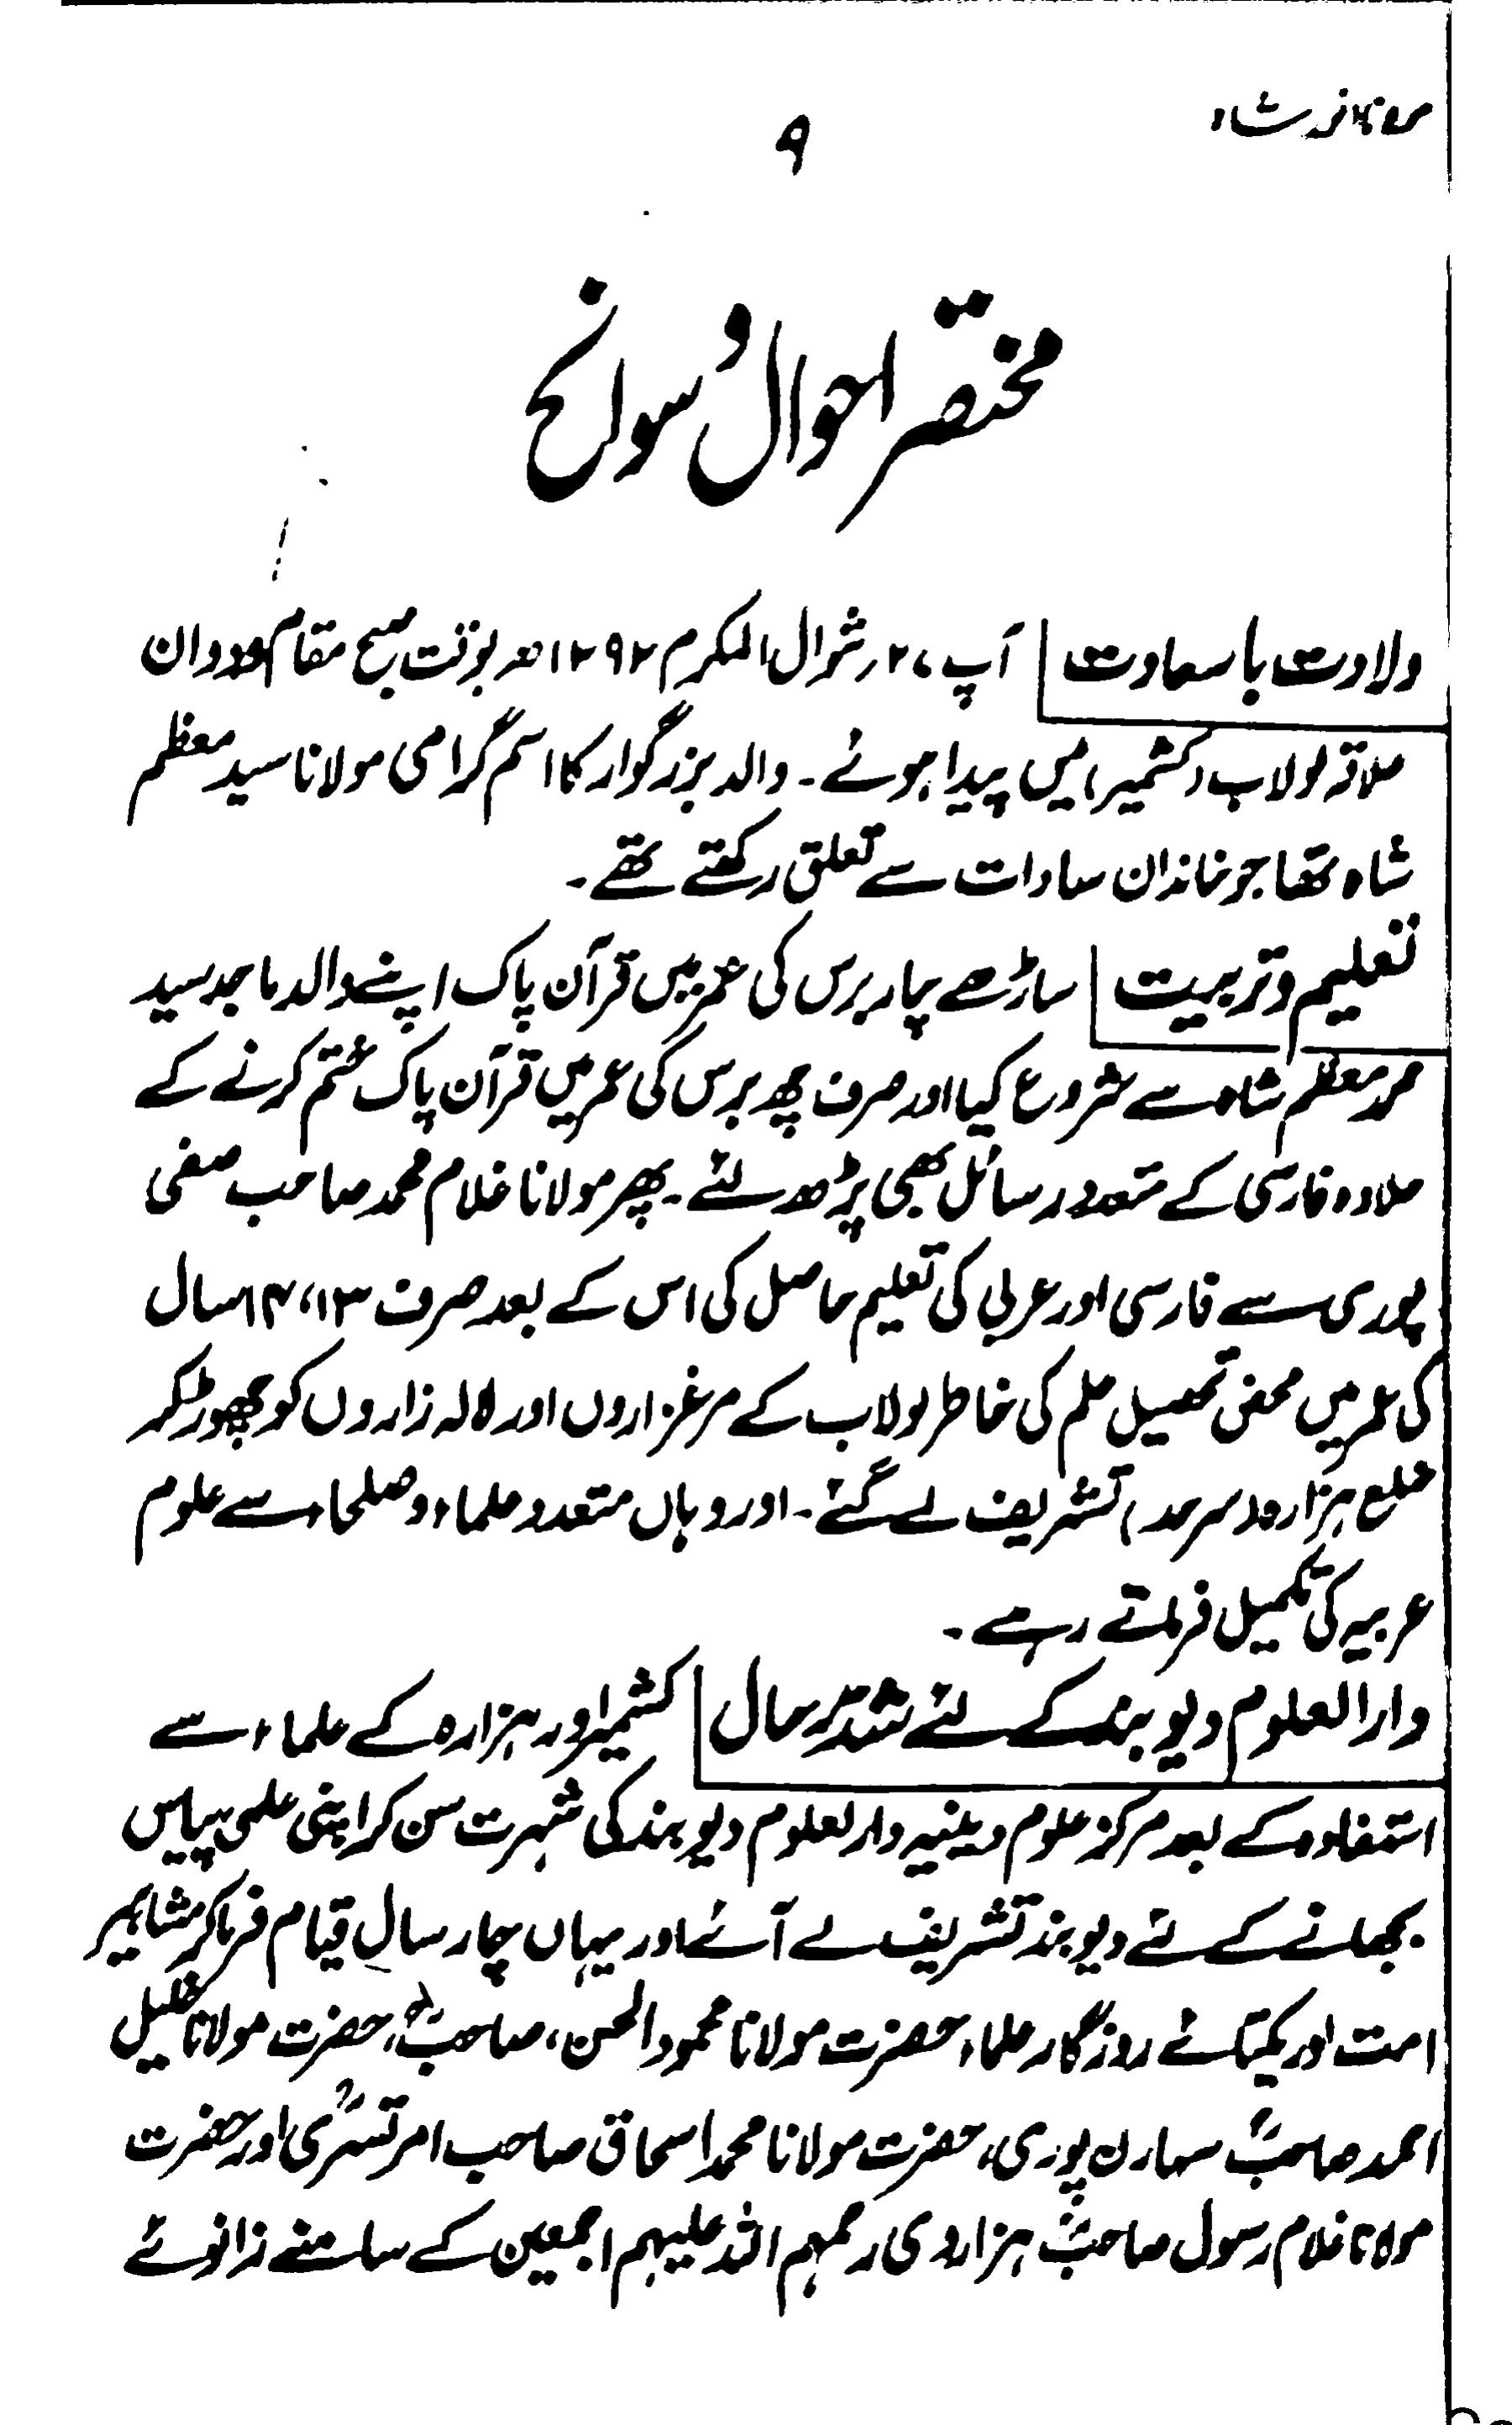 مولانا انور شاہ
۹
مختصر احوال و سوانح
ولادت باسعادت آپ ۲۷ر شوال المکرم ۱۲۹۲ھ بوقت صبح مقام وودوان
علاقہ لولاب (کشمیر) میں پیدا ہوئے۔ والد بزرگوار کا اسم گرامی مولانا سید معظم
شاہ تھا جو خاندان سادات سے تعلق رکھتے تھے۔
تعلیم و تربیت ساڑھے چار برس کی عمر میں قرآن پاک اپنے والد ماجد سید
محمد معظم شاہ سے شروع کیا اور صرف چھ برس کی عمر میں قرآن پاک ختم کرنے کے
علاوہ فارسی کے متعدد رسائل بھی پڑھ لئے۔ پھر مولانا غلام محمد صاحب صفی
پوری سے فارسی اور عربی کی تعلیم حاصل کی اس کے بعد صرف ۱۳، ۱۴ سال
کی عمر میں محض تحصیل علم کی خاطر لولاب کے مرغزاروں اور لالہ زاروں کو چھوڑ کر
ضلع ہزارہ (سرحد) تشریف لے گئے۔ اور وہاں متعدد علماء و صلحاء سے علوم
عربیہ کی تکمیل فرماتے رہے۔
دارالعلوم دیوبند کے لئے شد رحال کشمیر اور ہزارہ کے علماء سے
استفادہ کے بعد مرکز علوم دینیہ دارلعلوم دیوبند کی شہرت سن کر اپنی علمی پیاس
بجھانے کے لئے دیوبند تشریف لے آئے اور یہاں چار سال قیام فرما کر مشاہیر
امت اور یکتائے روزگار علماء حضرت مولانا محمود الحسن، صاحبؒ، حضرت مولانا خلیل
احمد صاحبؒ سہارن پوری، حضرت مولانا محمد اسحاق صاحب امرتسریؒ اور حضرت
مولانا غلام رسول صاحبؒ ہزاروی رحمہم اللہ علیہم اجمعین کے سامنے زانوئے